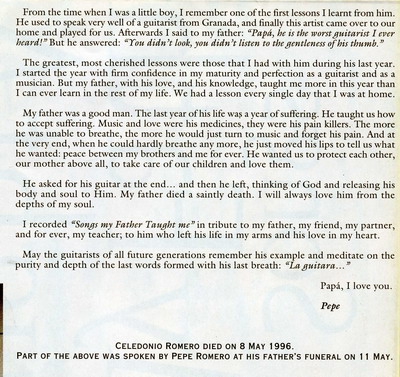 From the time when I was a little boy, I remember one of the first lessons I learnt from him.
He used to speak very well of a guitarist from Granada, and finally this artist came over to our
home and played for us. Afterwards I said to my father: "Papá, he is the worst guitarist I ever
heard!" But he answered: "You didn't look, you didn't listen to the gentleness of his thumb."
The greatest, most cherished lessons were those that I had with him during his last year.
I started the year with firm confidence in my maturity and perfection as a guitarist and as a
musician. But my father, with his love, and his knowledge, taught me more in this year than
I can ever learn in the rest of my life. We had a lesson every single day that I was at home.
My father was a good man. The last year of his life was a year of suffering. He taught us how
to accept suffering. Music and love were his medicines, they were his pain killers. The more
he was unable to breathe, the more he would just turn to music and forget his pain. And at
the very end, when he could hardly breathe any more, he just moved his lips to tell us what
he wanted: peace between my brothers and me for ever. He wanted us to protect each other,
our mother above all, to take care of our children and love them.
He asked for his guitar at the end... and then he left, thinking of God and releasing his
body and soul to Him. My father died a saintly death. I will always love him from the
depths of my soul.
I recorded "Songs my Father Taught me" in tribute to my father, my friend, my partner,
and for ever, my teacher; to him who left his life in my arms and his love in my heart.
May the guitarists of all future generations remember his example and meditate on the
purity and depth of the last words formed with his last breath: "La guitara..."
Papá, I love you.
Pepe
CELEDONIO ROMERO DIED ON 8 MAY 1996.
PART OF THE ABOVE WAS SPOKEN BY PEPE ROMERO AT HIS FATHER'S FUNERAL ON 11 MAY.